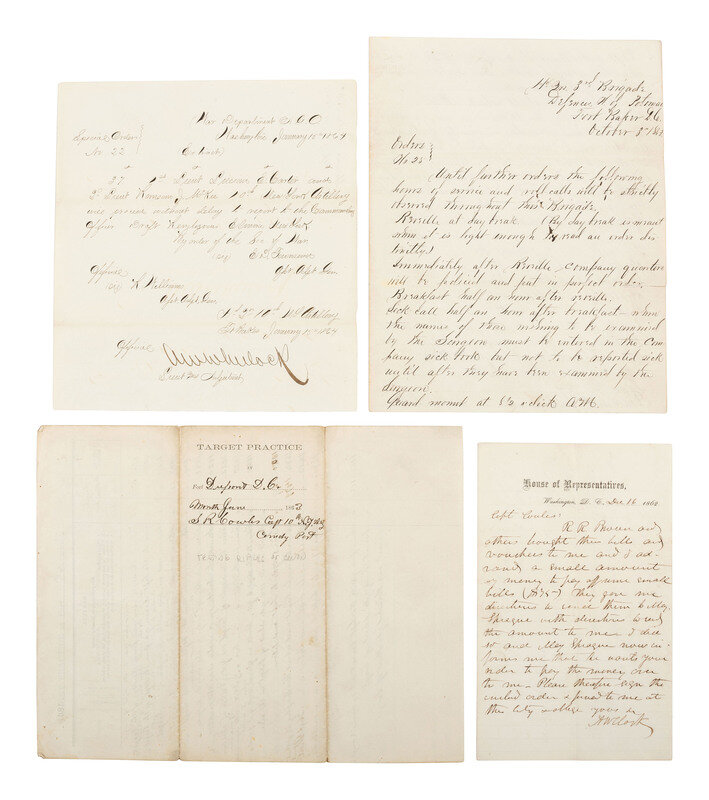 War Department A. G. O.
Washington January 15th 1864
Special Order
No 22
Extract
37 1st Lieut C. Carter and
2d Lieut Ransom McKee 10th New York Artillery
will proceed without delay to report to the Commanding
Officer Draft Rendezvous Elmira New York
By order of the Sec of War
(sig) E. D. Townsend
Official Asst. Adjt. Gen.
(sig) Williams
Asst. Adjt. Gen.
Hd Qrs 10th NY Artillery
January 1864
Official
Lieut and Adjutant
Hd Qrs 3rd Brigade
Defences N. of Potomac
Fort Baker D.C.
October 3d
Orders
No 25
Until further orders the following
hours of service and roll calls will be strictly
observed throughout this Brigade.
Reveille at day break (By day break is meant
when it is light enough to read an order dis-
tinctly)
Immediately after Reveille company quarters
will be policed and put in perfect order.
Breakfast half an hour after reveille.
Sick call half an hour after breakfast when
the names of those wishing to be examined
by the Surgeon must be entered in the Com-
pany sick book but not to be reported sick
until after they have been examined by the
Surgeon.
Guard mount at 8½ o'clock A.M.
TARGET PRACTICE
Post Dupont D.C.
Month June 1863
S R Cowles Capt 10th NY Arty
Comdg Post
House of Representatives,
Washington, D. C. Dec 16 1863
Capt Cowles:
R. R. and
others brought their bills and
vouchers to me and I ad-
vanced a small amount
of money to pay off some small
bills They gave me
directions to send them to Maj
Sprague with directions to send
the amount to me. I did
so and Maj Sprague now in-
forms me that he wants your
order to pay the money over
to me. Please therefore sign the
enclosed order & send to me at
this city & oblige yours &c
A W Clark